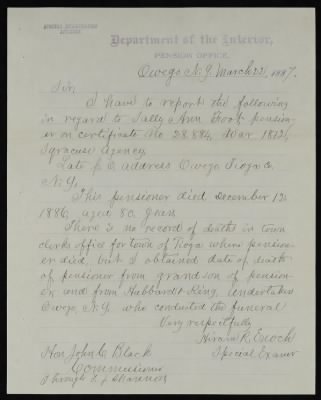 Department of the Interior,
PENSION OFFICE,
Owego N.Y. March 21, 1887.
Sir,
I have to report the following
in regard to Sally Ann Foot pension-
er on certificate No 28,884, War 1812,
Syracuse Agency.
Late P.O. address Owego Tioga Co.
N.Y.
This pensioner died December 12
1886, aged 80 years
There is no record of deaths in town
clerks office for town of Tioga where pension-
er died, but I obtained date of death
of pensioner from grandson of pension-
er and from Hubbard & King, undertakers
Owego, N.Y. who conducted the funeral
Very respectfully
Hiram R. Enoch
Special Examr
Hon John C. Black
Commissioner
Through